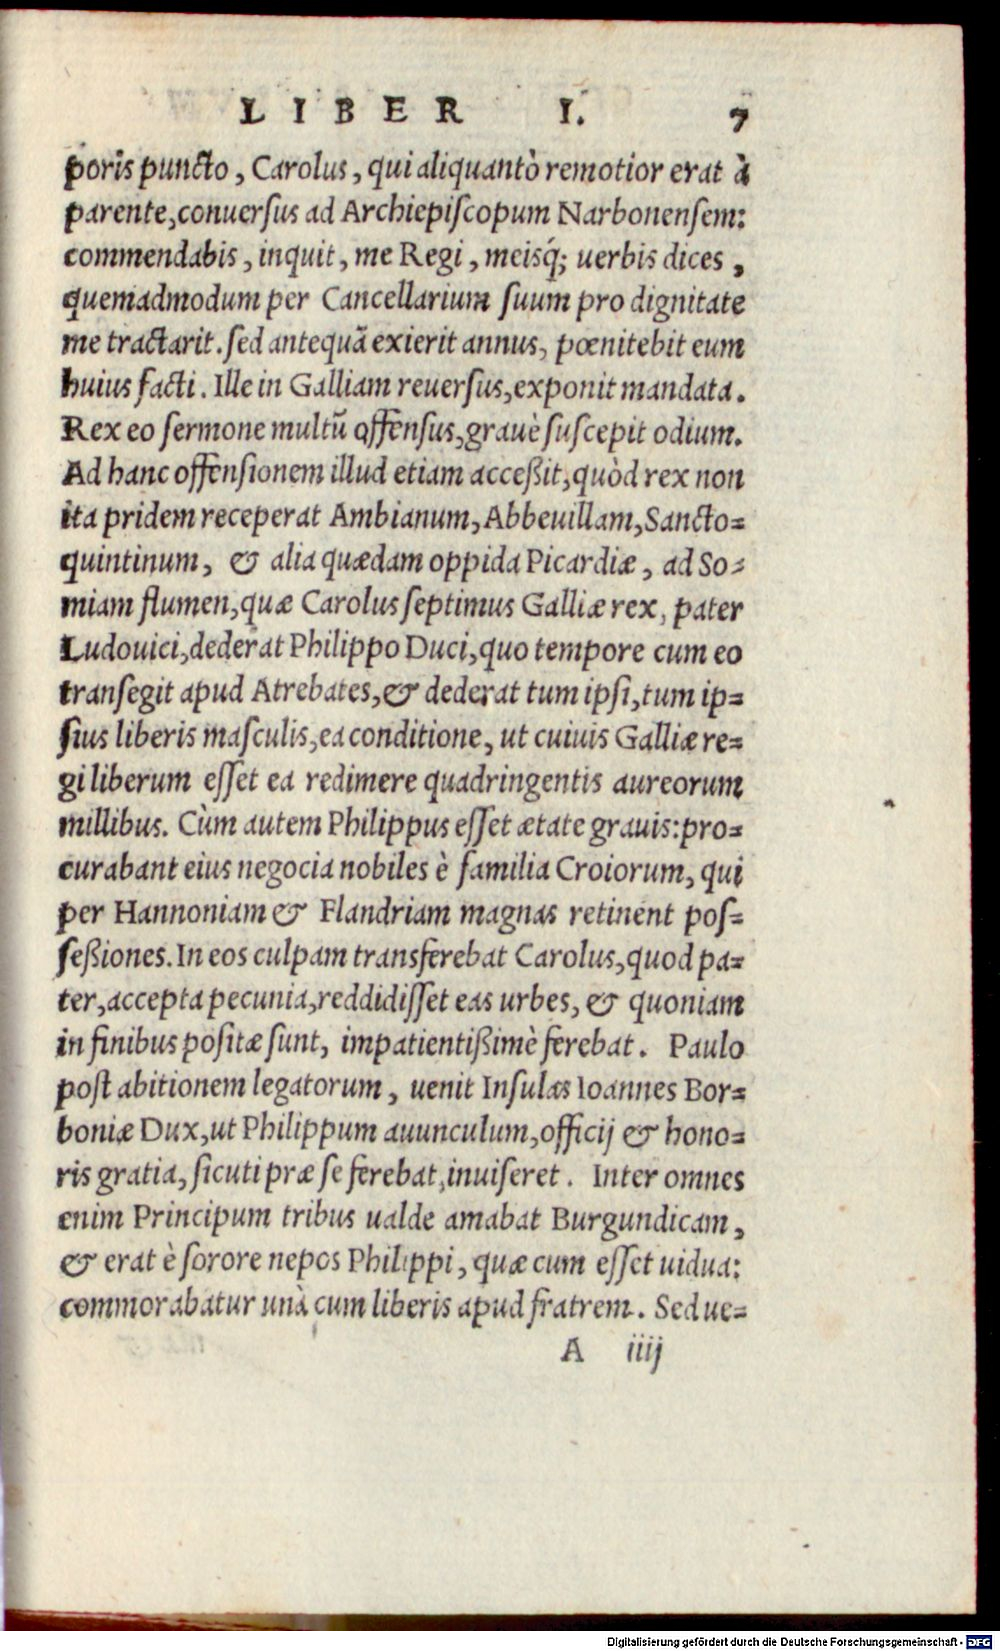 LIBER I. 7
poris puncto, Carolus, qui aliquantò remotior erat à
parente, conuersus ad Archiepiscopum Narbonensem:
commendabis, inquit, me Regi, meisq́; uerbis dices,
quemadmodum per Cancellarium suum pro dignitate
me tractarit. sed antequā exierit annus, pœnitebit eum
huius facti. Ille in Galliam reuersus, exponit mandata.
Rex eo sermone multū offensus, grauè suscepit odium.
Ad hanc offensionem illud etiam acceßit, quòd rex non
ita pridem receperat Ambianum, Abbeuillam, Sancto=
quintinum, & alia quædam oppida Picardiæ, ad So=
miam flumen, quæ Carolus septimus Galliæ rex, pater
Ludouici, dederat Philippo Duci, quo tempore cum eo
transegit apud Atrebates, & dederat tum ipsi, tum ip=
sius liberis masculis, ea conditione, ut cuiuis Galliæ re=
gi liberum esset ea redimere quadringentis aureorum
millibus. Cùm autem Philippus esset ætate grauis: pro=
curabant eius negocia nobiles è familia Croiorum, qui
per Hannoniam & Flandriam magnas retinent pos=
seßiones. In eos culpam transferebat Carolus, quod pa=
ter, accepta pecunia, reddidisset eas urbes, & quoniam
in finibus positæ sunt, impatientißimè ferebat. Paulo
post abitionem legatorum, uenit Insulas Ioannes Bor=
boniæ Dux, ut Philippum auunculum, officij & hono=
ris gratia, sicuti præ se ferebat, inuiseret. Inter omnes
enim Principum tribus ualde amabat Burgundicam,
& erat è sorore nepos Philippi, quæ cum esset uidua:
commorabatur unà cum liberis apud fratrem. Sed ue=
A iiij
Digitalisierung gefördert durch die Deutsche Forschungsgemeinschaft - DFG